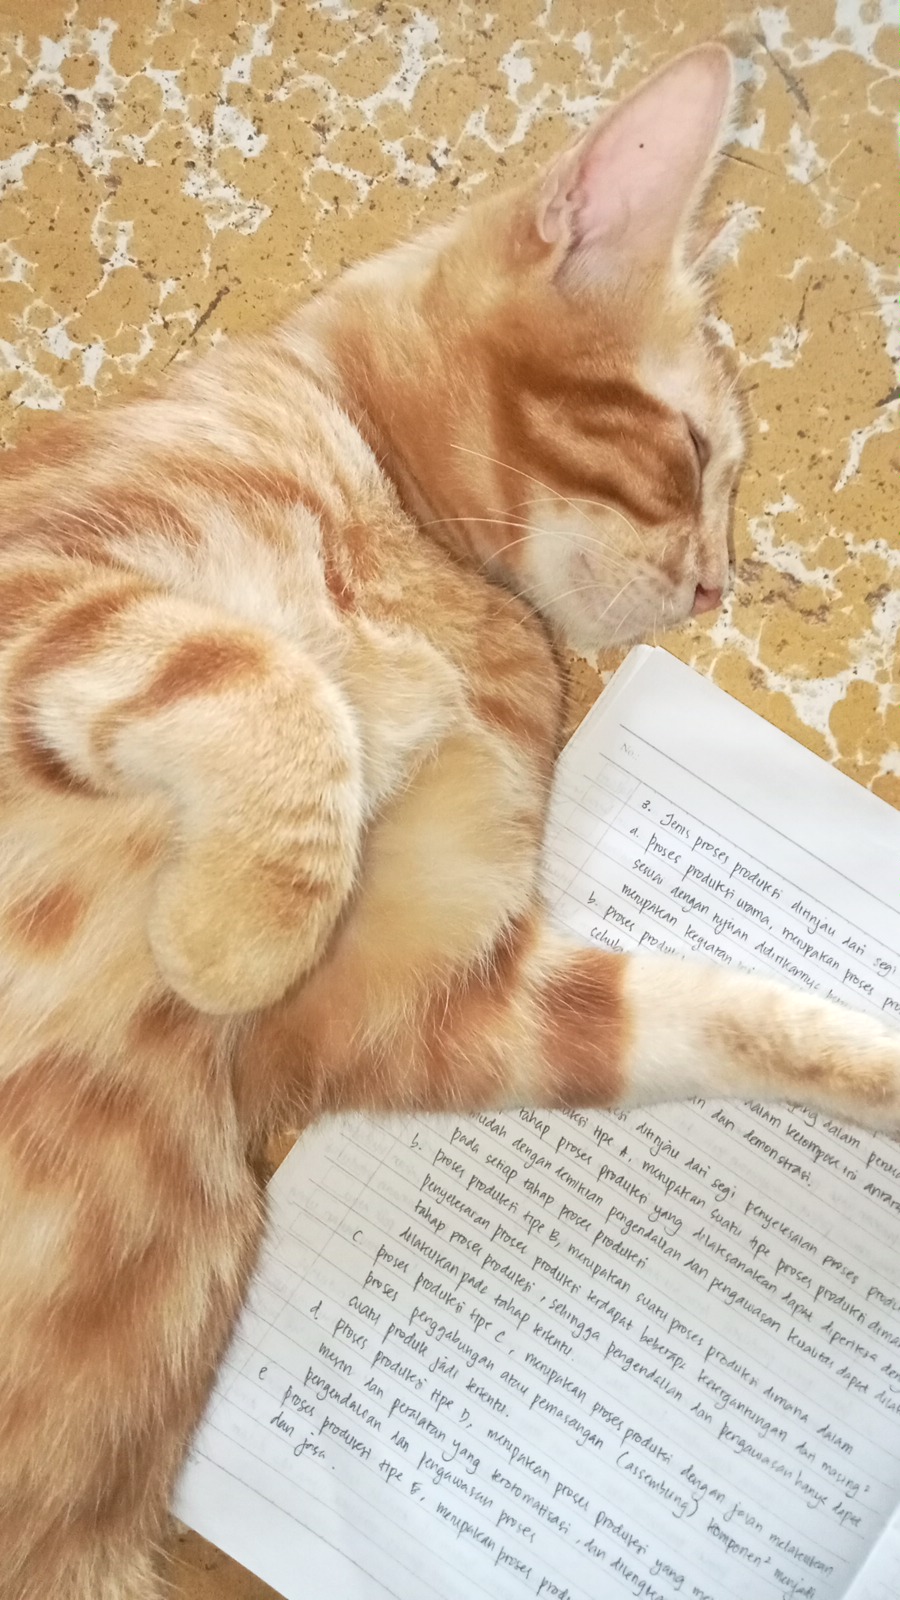 No.:
3. Jenis proses produksi ditinjau dari segi
a. proses produksi utama, merupakan proses pro
sesuai dengan tujuan didirikannya
merupakan kegiatan
b. proses produ
dalam
dalam kelompok ini antara
dan demonstrasi.
ditinjau dari segi penyelesaian proses produ
tipe A, merupakan suatu tipe proses produksi dima
tahap proses produksi yang dilaksanakan dapat diperiksa den
mudah dengan demikian pengendalian dan pengawasan kualitas dapat dilak
pada setiap tahap proses produksi
b. proses produksi tipe B, merupakan suatu proses produksi dimana dalam
penyelesaian proses produksi terdapat beberapa ketergantungan dari masing²
tahap proses produksi, sehingga pengendalian dan pengawasan hanya dapat
dilakukan pada tahap tertentu.
c. proses produksi tipe C, merupakan proses produksi dengan jalan melakukan
proses penggabungan atau pemasangan (assembling) komponen² menjadi
suatu produk jadi tertentu.
d. proses produksi tipe D, merupakan proses produksi yang me
mesin dan peralatan yang terotomatisasi, dan dilengka
pengendalian dan pengawasan proses
e proses produksi tipe E, merupakan proses prod
dan jasa.